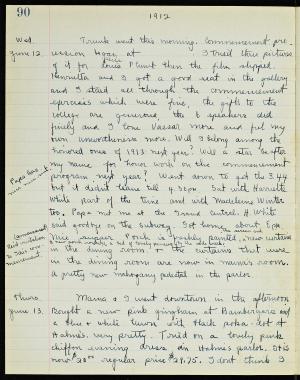 90
1912
Wed.
June 12.
Trunk went this morning. Commencement pro-
cession began at 3 Tried three pictures
of it for Louise Plumb then the film slipped.
Henrietta and I got a good seat in the gallery
and I staid all through the commencement
exercises which were fine, the gifts to the
college are generous, the 6 speakers did
finely and I love Vassar more and feel my
own unworthiness more. Will I belong among the
honored ones of 1913 next year? Will a star be after
my name for honor work on the commencement
program next year? Went down to get the 3.44
but it didn't leave till 4.30 pm. Sat with Harriette
White part of the time and with Madeleine Winter
too. Papa met me at the Grand Central. H. White
said goodbye on the subway. Got home about 8 pm
in the dining room & the curtains that were
in the dining room are now in mama's room.
A pretty new mahogany pedestal in the parlor.
Thurs.
June 13.
Mama & I went downtown in the afternoon
Bought a new pink gingham at Bambergers and
a blue & white lawn with black polka-dot at
Hahnes. very pretty. Tried on a lovely pink
chiffon evening dress in Hahnes parlor. It is
now $20 regular price $29.75. I don't think I